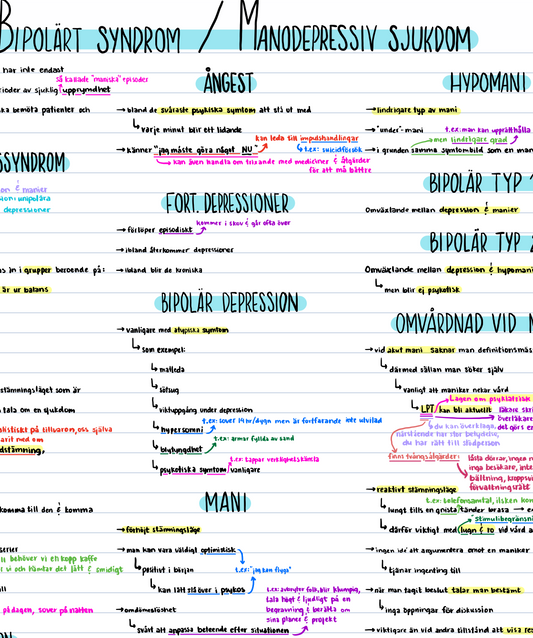 BIPOLÄRT SYNDROM / MANODEPRESSIV SJUKDOM
har inte endast
så kallade "maniska" episoder
rioder av sjuklig upprymdhet
ska bemöta patienter och
SSYNDROM
on & manier
unipolära
depressioner
as än i grupper beroende på:
är ur balans
stämningsläget som är
tala om en sjukdom
listiskt på tillvaron, oss själva
arit ned om
dstämning,
komma till den & komma
serier
behöver vi en kopp kaffe
vi och hämtar det lätt & smidigt
på dagen, sover på natten
ÅNGEST
→ bland de svåraste psykiska symtom att stå ut med
↳ varje minut blir ett lidande
kan leda till impulshandlingar
→ känner "jag måste göra något NU"
t.ex: suicidförsök
↳ kan även handla om trixande med mediciner & åtgärder
för att må bättre
FORT. DEPRESSIONER
kommer i skov & går ofta över
→ förlöper episodiskt
→ ibland återkommer depressioner
→ ibland blir de kroniska
BIPOLÄR DEPRESSION
→ vanligare med atypiska symtom
↳ som exempel:
↳ matleda
↳ sötsug
↳ viktuppgång under depression
↳ hypersomni
t.ex: sover 14 tr/dygn men är fortfarande inte utvilad
↳ blytunghet
t.ex: armar fyllda av sand
↳ psykotiska symtom vanligare
t.ex: tappar verklighetskänsla
MANI
→ förhöjt stämningsläge
→ man kan vara väldigt optimistisk
↳ positivt i början
t.ex: "jag kan flyga"
↳ kan lätt slå över i psykos
→ omdömeslöshet
t.ex: avbryter folk, blir klumpig,
tala högt & ljudligt på en
begravning & berätta om
sina planer & projekt
↳ svårt att anpassa beteende efter situationen
HYPOMANI
→ lindrigare typ av mani
→ "under"-mani
t.ex: man kan upprätthålla
men lindrigare grad
→ i grunden samma symtombild som en man
BIPOLÄR TYP 1
Omväxlande mellan depression & manier
BIPOLÄR TYP 2
Omväxlande mellan depression & hypomani
↳ men blir ej psykotisk
OMVÅRDNAD VID M
→ vid akut mani saknar man definitionsmäs
↳ därmed sällan man söker själv
↳ vanligt att maniker nekar vård
Lagen om psykiatrisk
↳ LPT kan bli aktuellt
läkare skri
överläkare
det görs en
↳ du kan överklaga,
närstående har stor betydelse,
du har rätt till stödperson
finns tvångsåtgärder:
låsta dörrar, ingen m
inga besökare, inte
bältning, kroppsvi
förvaltningsrätt
→ reaktivt stämningsläge
t.ex: telefonsamtal, ilsken kom
↳ långt tills en gnista tänder brasa
stimulibegränsni
↳ därför viktigt med lugn & ro vid vård a
→ ingen idé att argumentera emot en maniker
↳ tjänar ingenting till
→ när man tagit beslut talar man bestämt
↳ inga öppningar för diskussion
→ viktigare än vid andra tillstånd att visa res